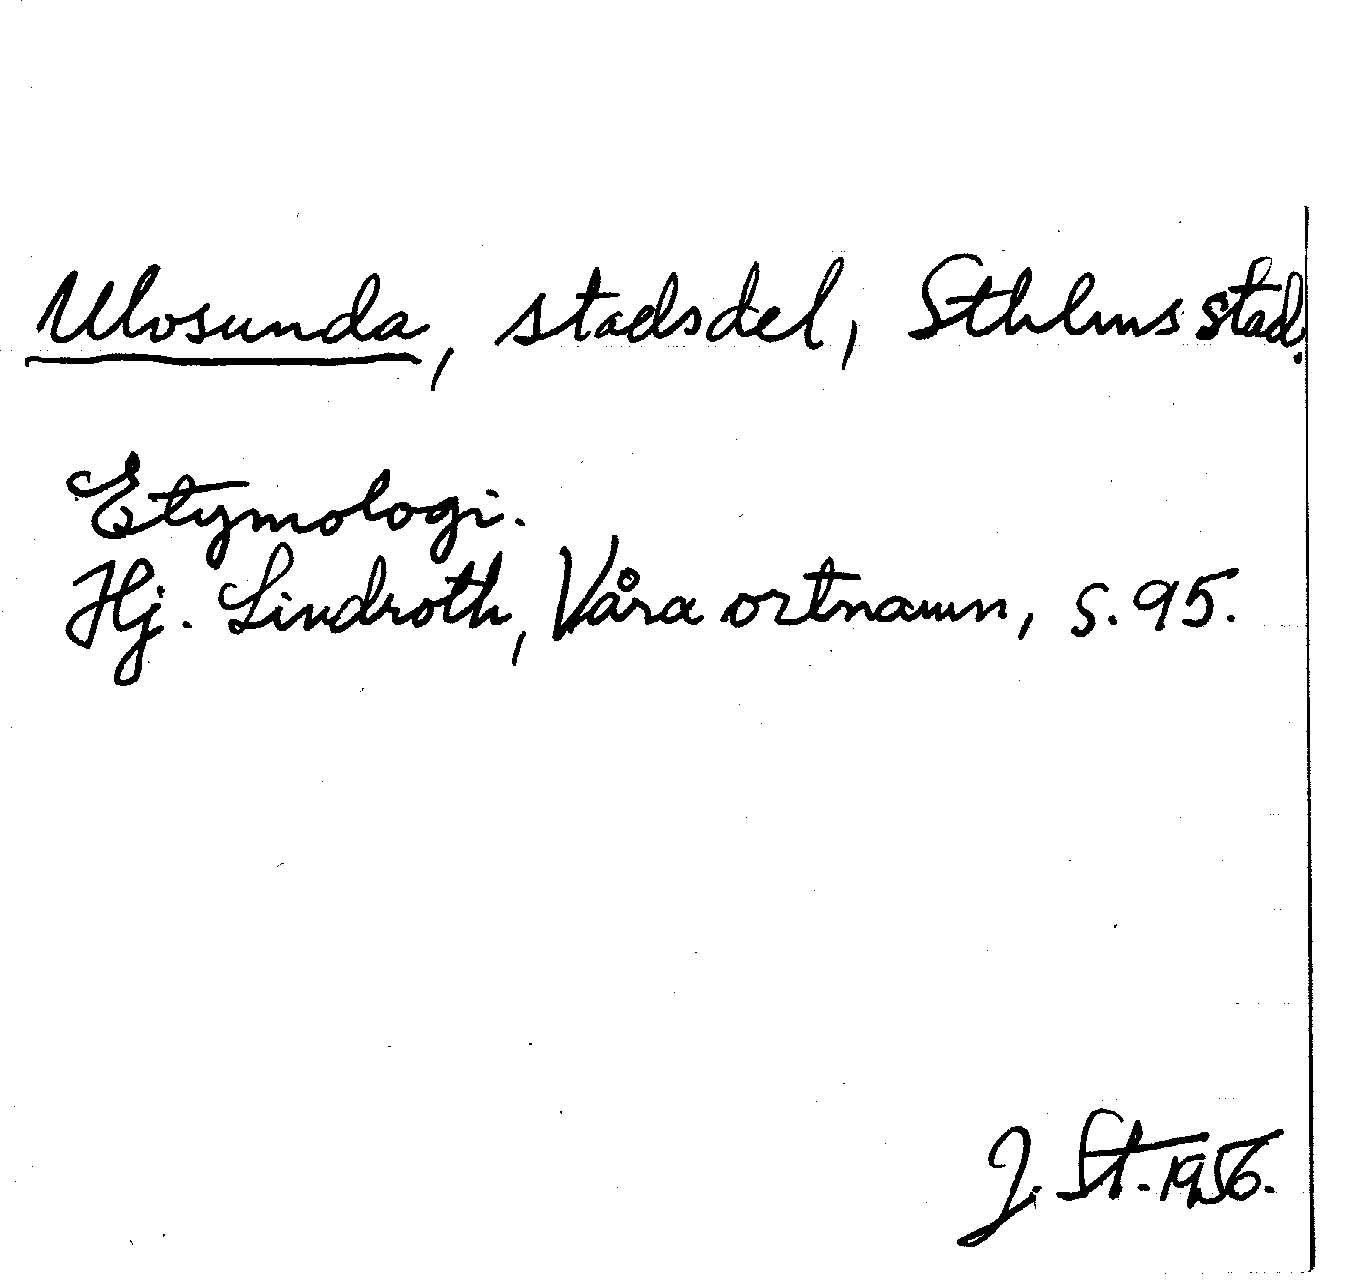 Ulvsunda, stadsdel, Sthlms stad.
Etymologi.
Hj. Lindroth, Våra ortnamn, s. 95.
J. St. 1956.